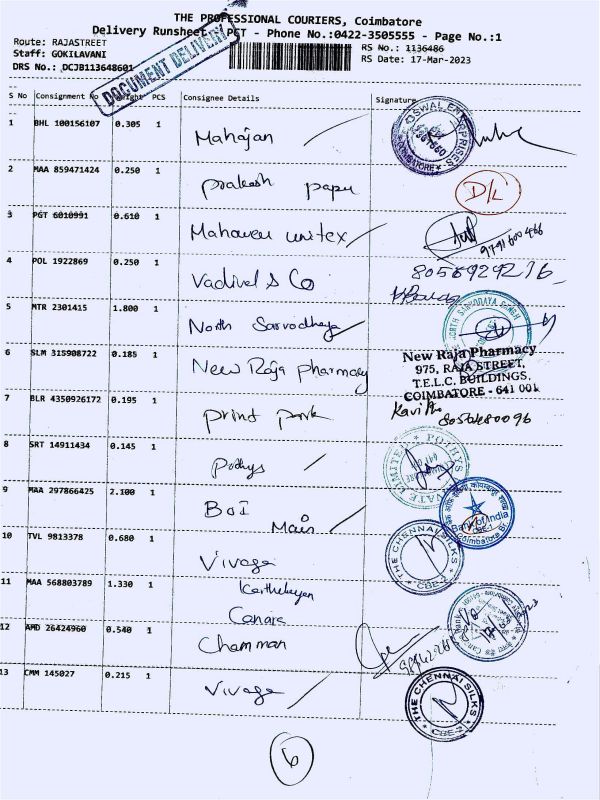 THE PROFESSIONAL COURIERS, Coimbatore
Delivery Runsheet PCT - Phone No.:0422-3505555 - Page No.:1
Route: RAJASTREET
Staff: GOKILAVANI
DRS No.: DCJB113648601
RS No.: 1136486
RS Date: 17-Mar-2023
DOCUMENT DELIVERY
S No Consignment No Weight PCS Consignee Details Signature
1 BHL 100156107 0.305 1 Mahajan
OSWAL ENTERPRISES COIMBATORE
2 MAA 859471424 0.250 1 prakash papu
D/L
3 PGT 6010991 0.610 1 Mahaveer unitex
9791600466
4 POL 1922869 0.250 1 Vadivel & Co
8056929276
5 MTR 2301415 1.800 1 North Sarvodhaya
6 SLM 315908722 0.185 1 New Raja Pharmacy
New Raja Pharmacy
975, RAJA STREET,
T.E.L.C. BUILDINGS,
COIMBATORE - 641 001
7 BLR 4350926172 0.195 1 print park
8056480096
8 SRT 14911434 0.145 1 Pothys
POTHYS PRIVATE LIMITED
9 MAA 297866425 2.100 1 BOI
Main
Bank of India
Coimbatore Br.
10 TVL 9813378 0.680 1 Vivaga
THE CHENNAI SILKS CBE-2
11 MAA 568803789 1.330 1 Karthikeyan
Canara
12 AMD 26424960 0.540 1 Chamman
13 CMM 145027 0.215 1 Vivaga
THE CHENNAI SILKS CBE-2
6